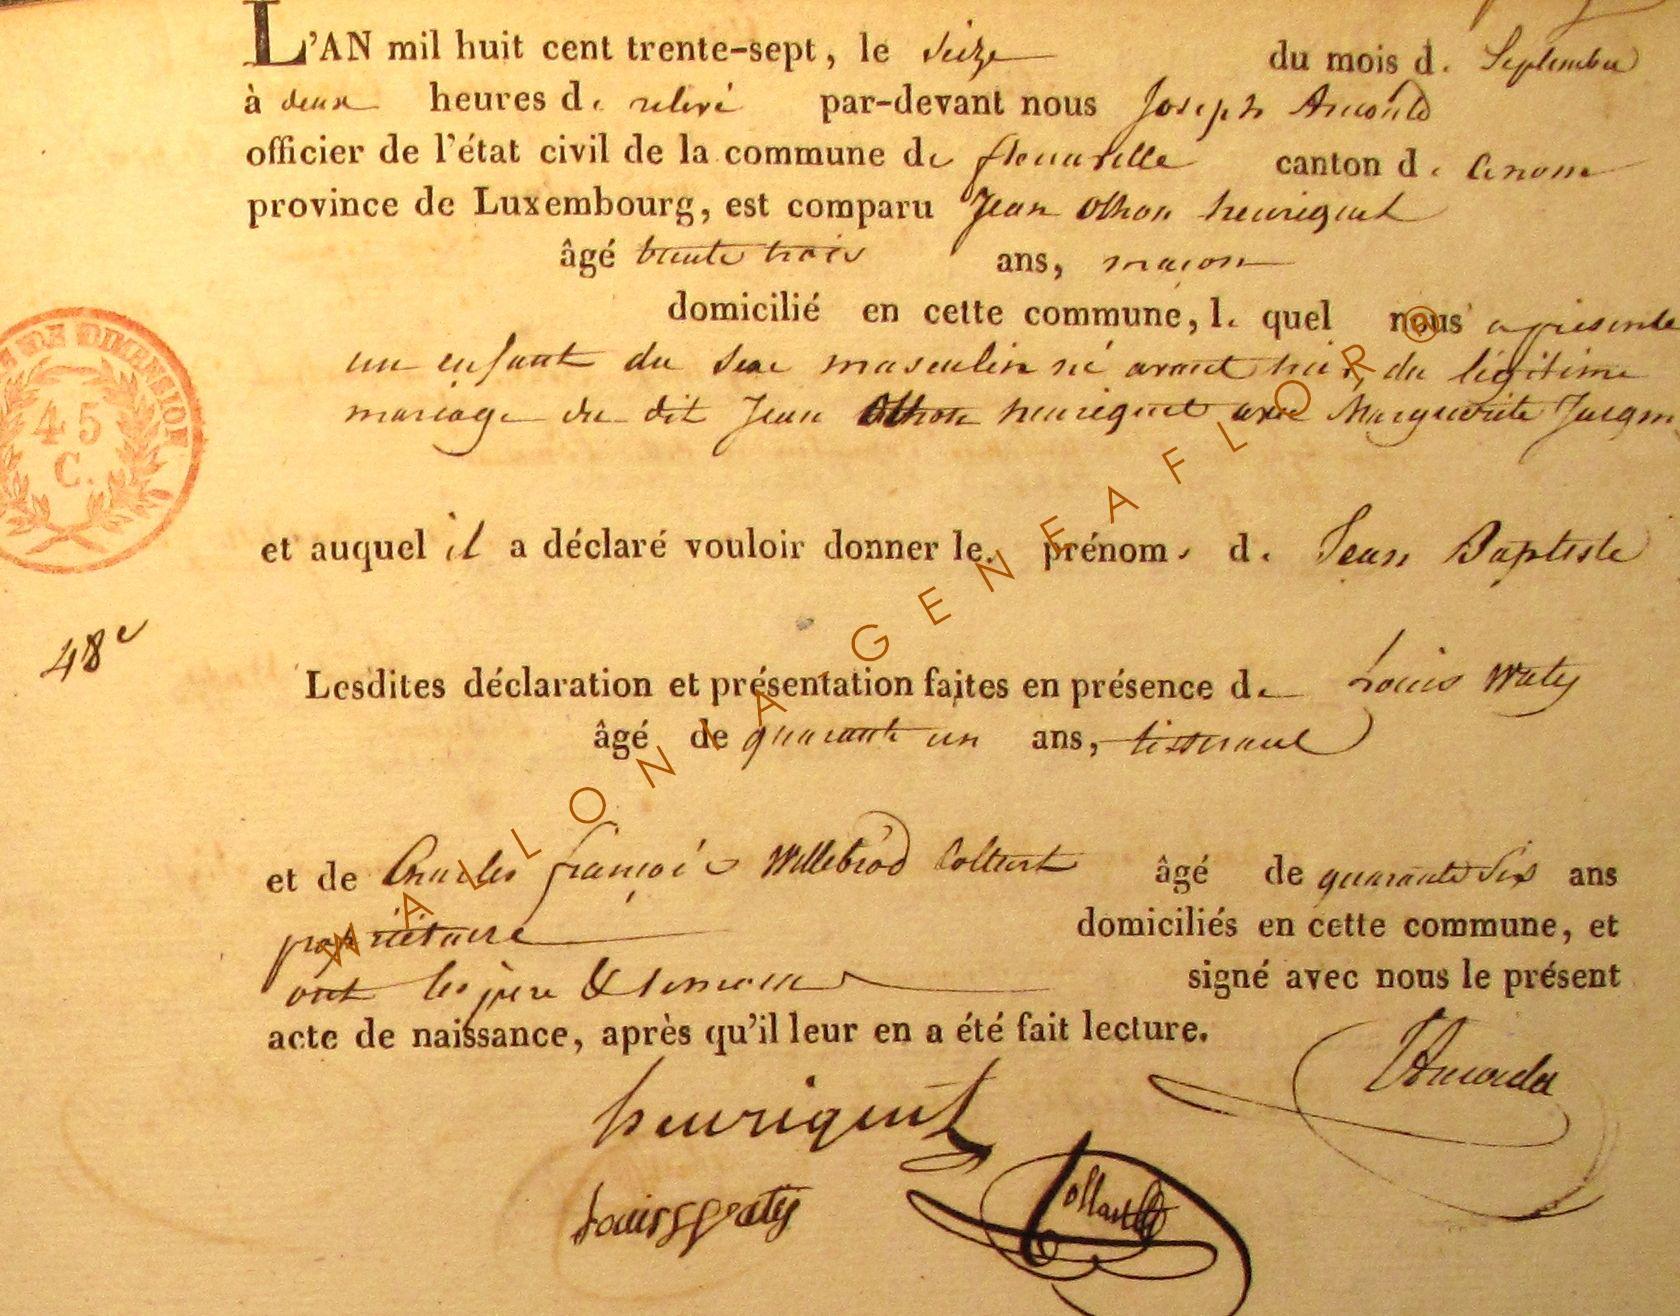 L'AN mil huit cent trente-sept, le seize du mois de Septembre
à deux heures de relevé par-devant nous Joseph Arnould
officier de l'état civil de la commune de canton de
province de Luxembourg, est comparu Jean othon henriquet
âgé trente trois ans, maçon
domicilié en cette commune, le quel nous a présenté
un enfant du sexe masculin né avant hier, du légitime
mariage du dit Jean Othon henriquet avec Marguerite
45
C.
et auquel il a déclaré vouloir donner les prénoms de Jean Baptiste
48e
Lesdites déclaration et présentation faites en présence de Louis Waty
âgé de quarante un ans, tisserand
et de Charles françois Willebrod âgé de quarante six ans
propriétaire domiciliés en cette commune, et
ont les père & témoins signé avec nous le présent
acte de naissance, après qu'il leur en a été fait lecture.
henriquet
Louis Waty
WALLONIA GENEAFLOR ®